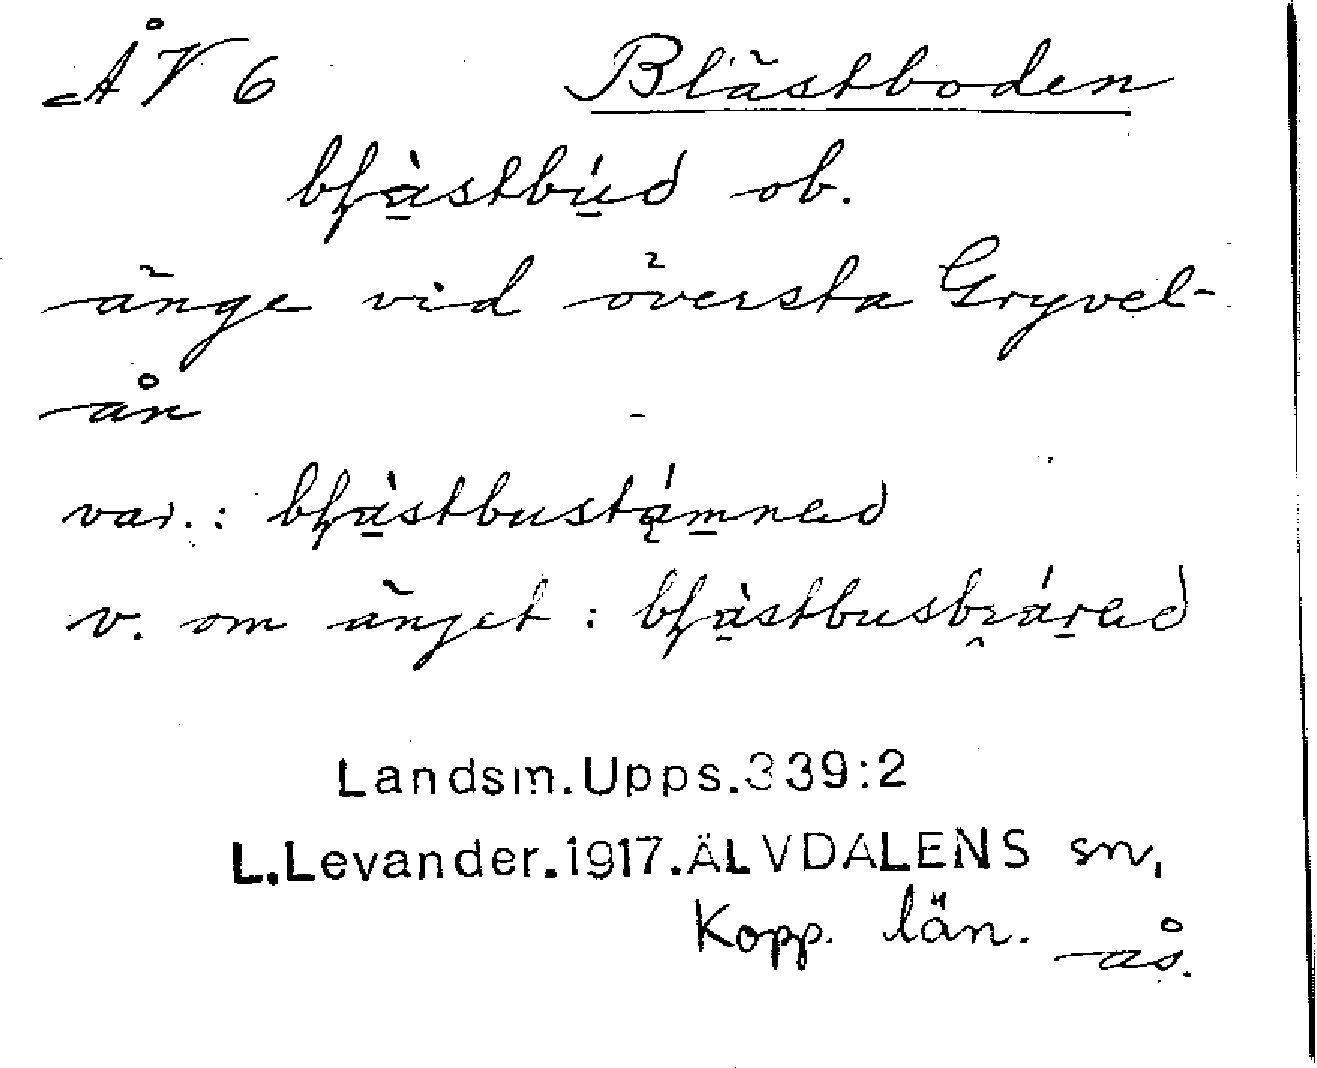 ÅV 6 Blästboden
bɫä̀stbúd ob.
änge vid översta Gryvel-
ån
var.: bɫä̀stbustämnað
v. om änget: bɫä̀stbusbrárað
Landsm.Upps.339:2
L.Levander.1917.ÄLVDALENS sn,
Kopp. län. ås.